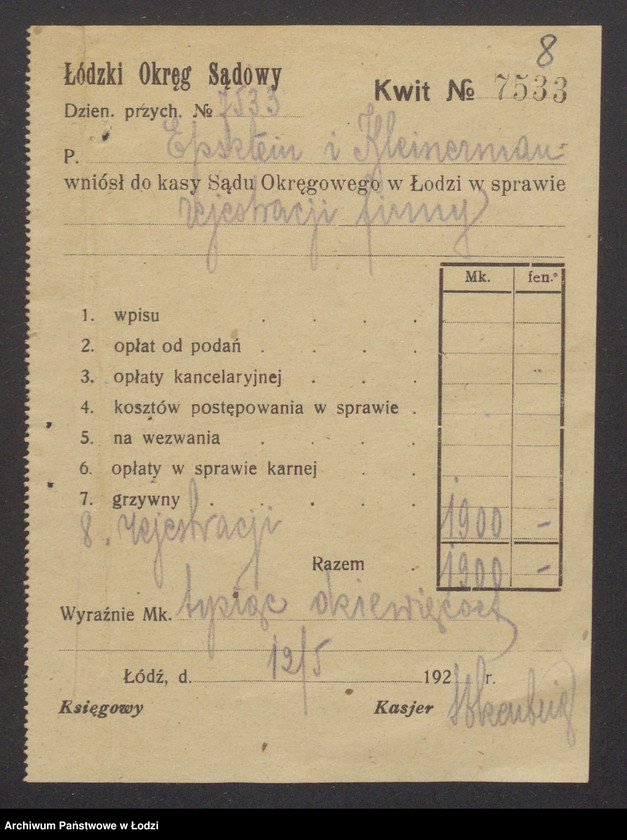 8
Łódzki Okręg Sądowy
Kwit № 7533
Dzien. przych. № 7533
P. Epsztein i Kleinerman
wniósł do kasy Sądu Okręgowego w Łodzi w sprawie
rejestracji firmy
Mk. fen.
1. wpisu
2. opłat od podań
3. opłaty kancelaryjnej
4. kosztów postępowania w sprawie
5. na wezwania
6. opłaty w sprawie karnej
7. grzywny
8. rejestracji 1900 -
Razem 1900 -
Wyraźnie Mk. tysiąc dziewięćset
Łódź, d. 12/5 192 r.
Księgowy Kasjer
Archiwum Państwowe w Łodzi